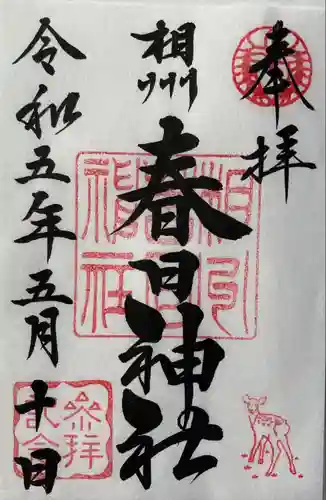 奉拝
相州
春日神社
令和五年五月十日
相州
春日
神社
参拝
記念